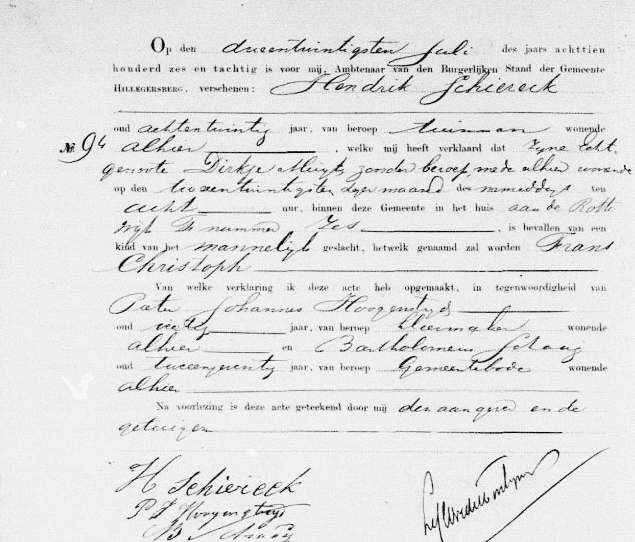 Op den drieentwintigsten Juli des jaars achttien
honderd zes en tachtig is voor mij, Ambtenaar van den Burgerlijken Stand der Gemeente
HILLEGERSBERG, verschenen: Hendrik Schiereck
oud achtentwintig jaar, van beroep tuinman wonende
No. 94 alhier, welke mij heeft verklaard dat zijne Echt-
genoote Dirkje zonder beroep mede alhier wonende
op den tweeentwintigsten dezer maand des namiddags ten
acht uur, binnen deze Gemeente in het huis aan de Rotte
wijk F nummer Zes, is bevallen van een
kind van het mannelijk geslacht, hetwelk genaamd zal worden Frans
Christoph
Van welke verklaring ik deze acte heb opgemaakt, in tegenwoordigheid van
Pieter Johannes
oud jaar, van beroep kleermaker wonende
alhier en Bartholomeus Schaaij
oud jaar, van beroep Gemeentebode wonende
alhier
Na voorlezing is deze acte geteekend door mij den aangever en de
getuigen
H Schiereck